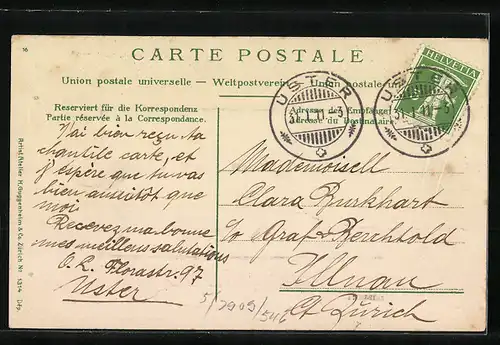 16
CARTE POSTALE
Union postale universelle — Weltpostverein — Union postale
Reserviert für die Korrespondenz
Partie réservée à la Correspondance.
Adresse des Empfängers
Adresse du Destinataire
HELVETIA
USTER
USTER
J'ai bien reçu ta
chantile carte, et
j'espère que tu vas
bien aussitôt que
moi
Recevez ma bonne
mes meilleus salutations
O. L. Florastr. 97
Uster
Mademoisell
Clara Burkhart
c/o Graf-Berchtold
Illnau
Ct. Zürich
5/2909/546
Reinl. Atelier H. Guggenheim & Co. Zürich Nr. 1314 Dép.